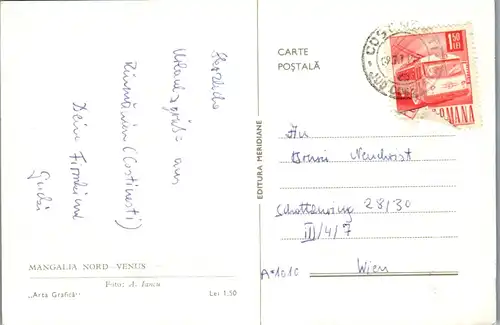 Herzliche
Urlaubsgrüße aus
Rumänien (Costinesti)
Dein Firmkind
MANGALIA NORD - VENUS -
Foto: A. Iancu
„Arta Grafică“
Lei 1.50
EDITURA MERIDIANE
CARTE
POȘTALĂ
1,50
LEI
An
Neudorist
Schottenring 28/30
III/4/7
A-1010
Wien